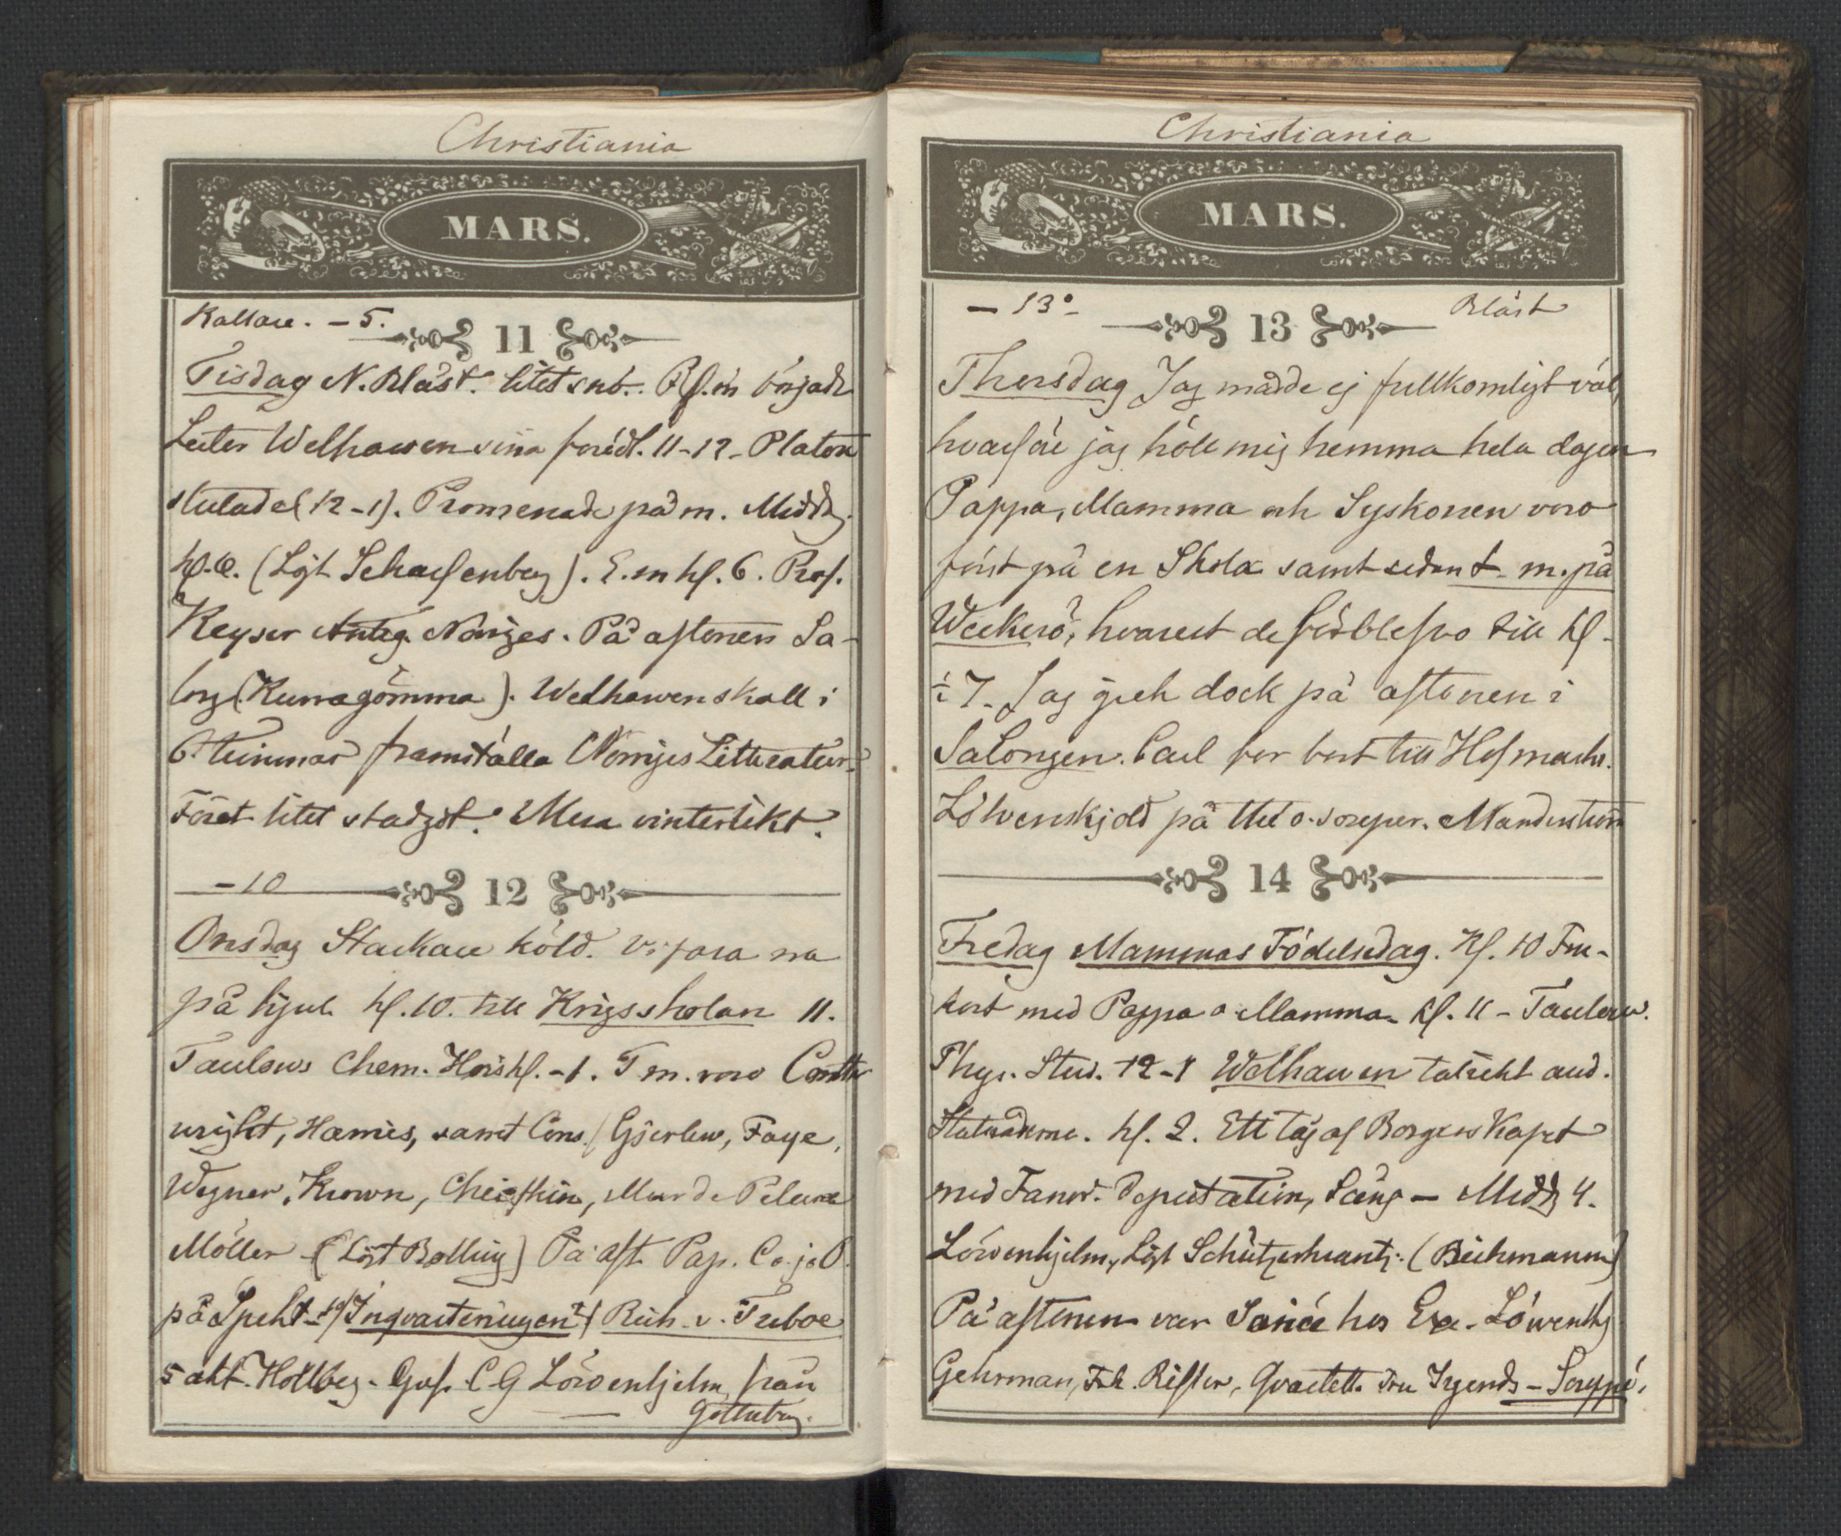 Christiania
MARS.
Kallare. – 5.
11
Tisdag N. Blåst. litet snö. Kl. började
Welhaven sina föredl. 11–12 – Platon
(12–1). Promenade på m. Midd.
E. m kl. 6. Prof.
Keyser Norriges. På aftonen Sa-
long (Kurragömma). Welhaven skall i
6 timmar framställa Norriges Litteratur.
Föret litet stadgdt. Mera vinterlikt.
– 10
12
Onsdag Starkare köld. Vi fara nu
på hjul. kl. 10. till Krigsskolan 11.
Taulows Chem. kl. – 1. T m. voro
wright, samt Cons. Gjerlew, Faye,
Wegner, Krown, Mur de Pelanne
Möller På aft. Pap. C o. jo O.
på Spekt. Inqvarteringen v. Treboe
5 akt. Holberg. C G Löwenhjelm från
Götheborg.
Christiania
MARS.
– 13° –
Blåst
13
Thorsdag Jag mådde ej fullkomligt väl
hvarföre jag höll mig hemma hela dagen
Pappa, Mamma och Syskonen voro
först på en Skola samt sedan f. m. på
Weckerö, hvarest de förblefvo till kl.
½ 7. Jag gick dock på aftonen i
Salongen. Carl for bort till Hofmarsk.
Lövenskjold på thé o. souper. Manderström
14
Fredag Mammas Födelsedag. Kl. 10 Fru-
kost med Pappa o Mamma. kl. 11 – Taulow.
Phys. Stud. 12–1 Welhaven talrikt aud.
Statsråderne. kl. 2. Ett tåg af Borgerskapet
med Fanor. Deputation, Sång – Midd 4.
Löwenhjelm, Löjt Schützercrantz. (Beichmann)
På aftonen var Soirée hos Exc. Löwenhj
Gehrman, Qvartett. – Souppé.